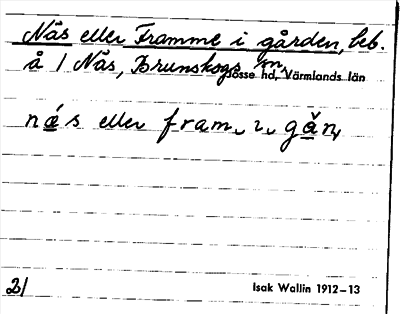 Nås eller Framme i gården, beb.
å 1 Nås, Brunskogs sn,
Jösse hd, Värmlands län
eller fram
21
Isak Wallin 1912–13